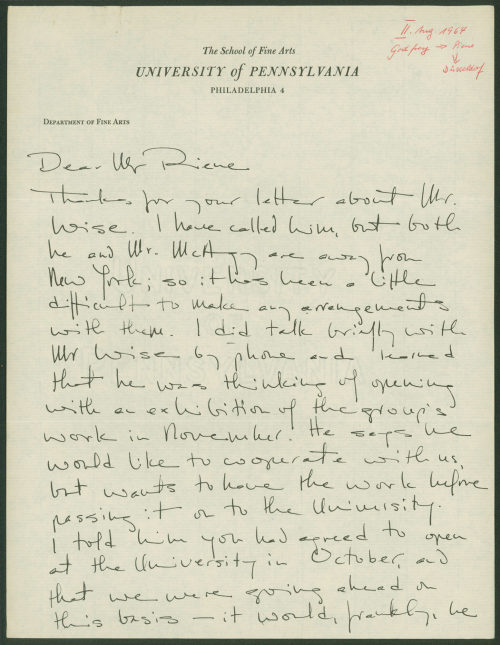 II. Aug. 1964
Godfrey → Piene
↓
Düsseldorf
The School of Fine Arts
UNIVERSITY of PENNSYLVANIA
PHILADELPHIA 4
DEPARTMENT OF FINE ARTS
Dear Mr Piene
Thanks for your letter about Mr.
Wise. I have called him, but both
he and Mr. are away from
New York; so it has been a little
difficult to make any arrangements
with them. I did talk briefly with
Mr Wise by phone and learned
that he was thinking of opening
with an exhibition of the group's
work in November. He says he
would like to cooperate with us,
but wants to have the work before
passing it on to the University.
I told him you had agreed to open
at the University in October, and
that we were going ahead on
this basis — it would, frankly, be